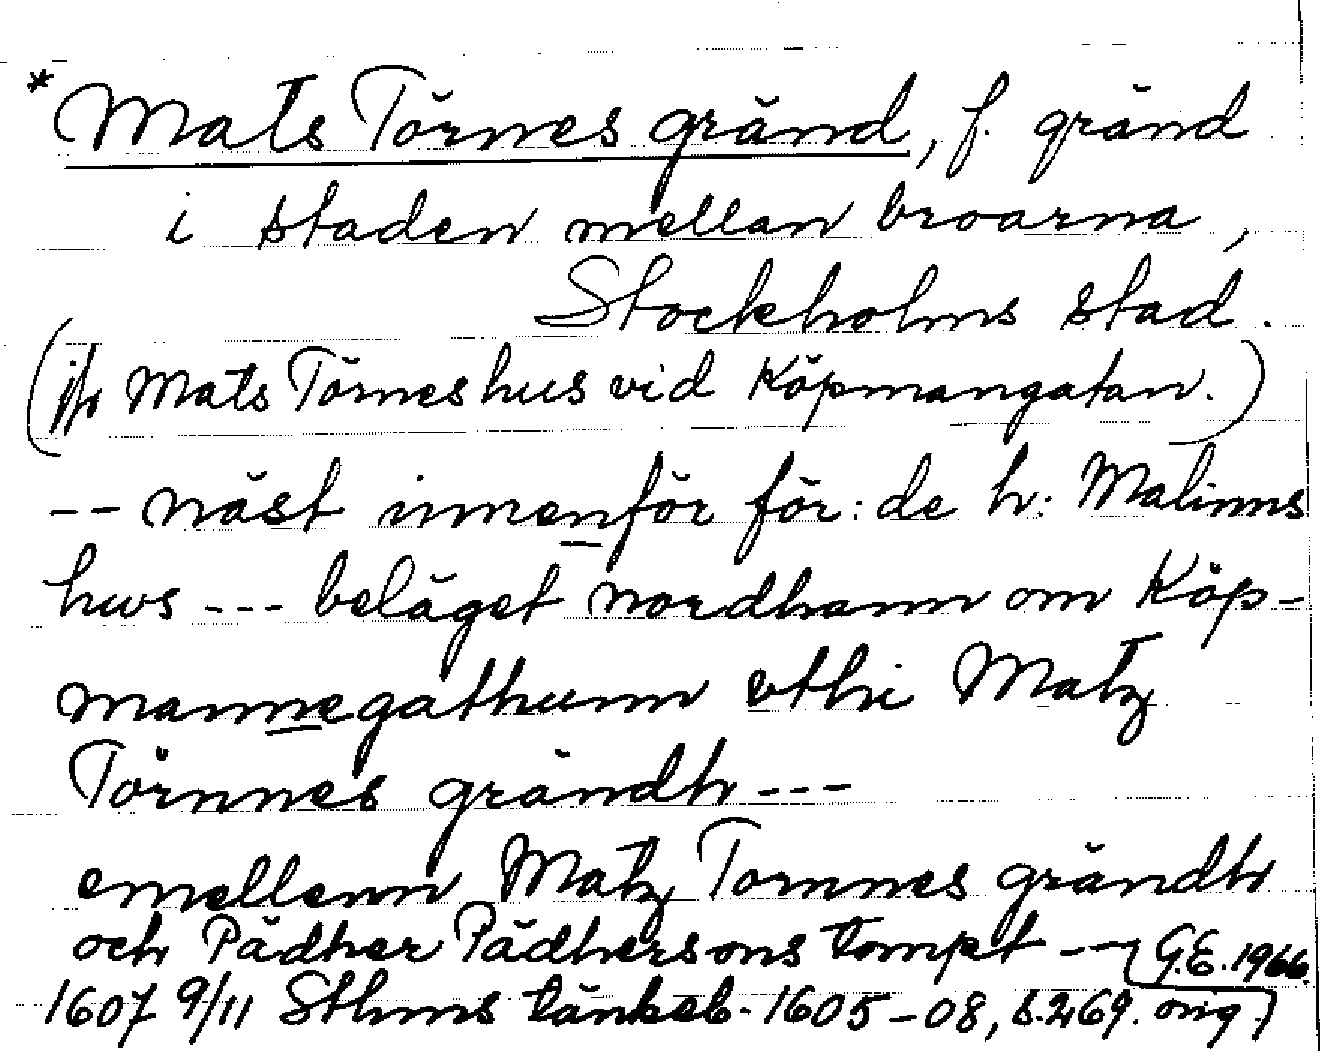 * Mats Törnes gränd, f. gränd
i staden mellan broarna,
Stockholms stad.
(jfr Mats Törnes hus vid Köpmangatan.)
-- näst innenför för: de h: Malinns
hws --- beläget nordhann om Köp-
mannegathunn vthi Matz
Törnnes gründh ---
emellenn Matz Tornnes grändh
och Pädher Pädhersons tompt -- G.E. 1966.
1607 9/11 Sthms tänkeb. 1605-08, s. 269. orig.)